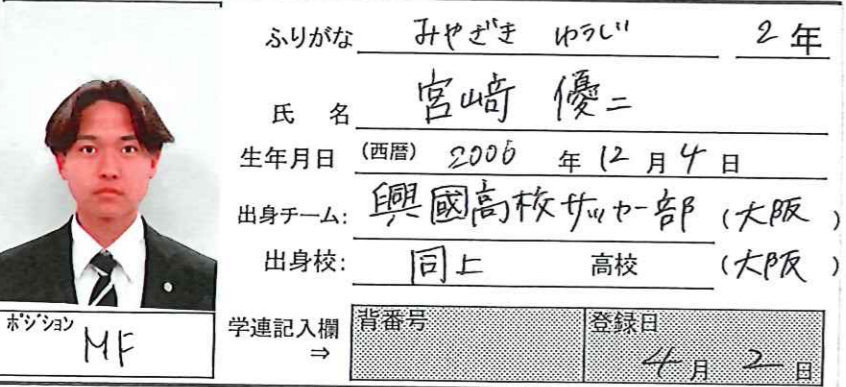 ふりがな みやざき ゆうじ 2年
氏 名 宮﨑 優二
生年月日 (西暦) 2006 年 12 月 4 日
出身チーム: 興國高校サッカー部 (大阪 )
出身校: 同上 高校 (大阪 )
ポジション MF
学連記入欄 ⇒ 背番号 登録日 4月 2日